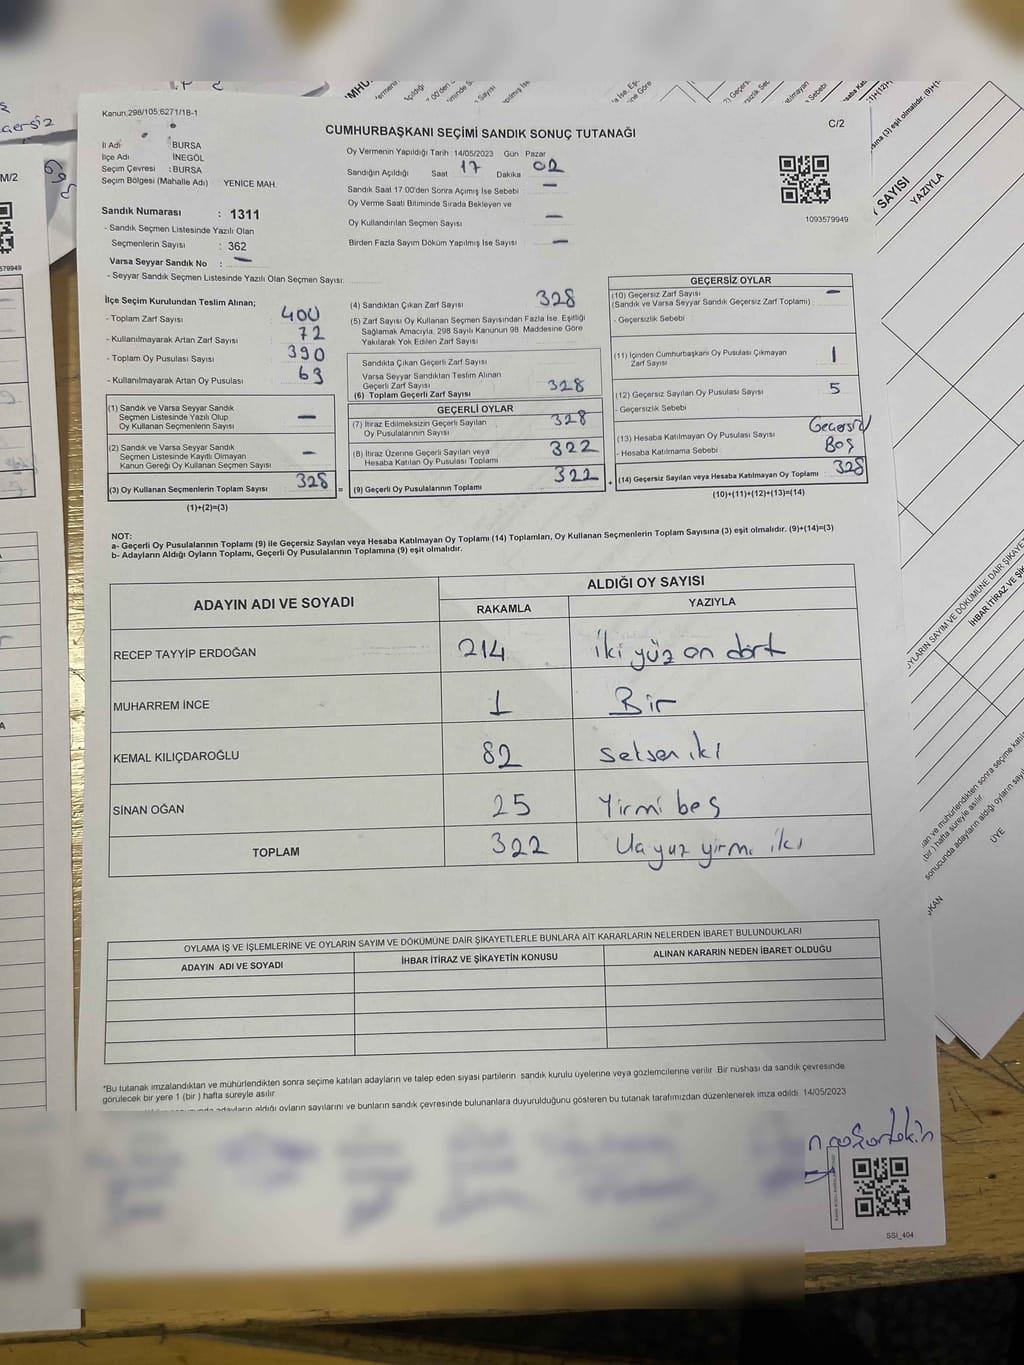 Kanun:298/105;6271/18-1
C/2
CUMHURBAŞKANI SEÇİMİ SANDIK SONUÇ TUTANAĞI
İl Adı : BURSA
İlçe Adı İNEGÖL
Seçim Çevresi : BURSA
Seçim Bölgesi (Mahalle Adı) YENİCE MAH.
Sandık Numarası : 1311
- Sandık Seçmen Listesinde Yazılı Olan
Seçmenlerin Sayısı : 362
Varsa Seyyar Sandık No : —
- Seyyar Sandık Seçmen Listesinde Yazılı Olan Seçmen Sayısı:
Oy Vermenin Yapıldığı Tarih :14/05/2023 Gün Pazar
Sandığın Açıldığı Saat 17 Dakika 02
Sandık Saat 17.00'den Sonra Açılmış İse Sebebi —
Oy Verme Saati Bitiminde Sırada Bekleyen ve
Oy Kullandırılan Seçmen Sayısı —
Birden Fazla Sayım Döküm Yapılmış İse Sayısı —
1093579949
İlçe Seçim Kurulundan Teslim Alınan;
- Toplam Zarf Sayısı 400
- Kullanılmayarak Artan Zarf Sayısı 72
- Toplam Oy Pusulası Sayısı 390
- Kullanılmayarak Artan Oy Pusulası 63
(1) Sandık ve Varsa Seyyar Sandık
Seçmen Listesinde Yazılı Olup
Oy Kullanan Seçmenlerin Sayısı —
(2) Sandık ve Varsa Seyyar Sandık
Seçmen Listesinde Kayıtlı Olmayan
Kanun Gereği Oy Kullanan Seçmen Sayısı —
(3) Oy Kullanan Seçmenlerin Toplam Sayısı 328 =
(1)+(2)=(3)
(4) Sandıktan Çıkan Zarf Sayısı 328
(5) Zarf Sayısı Oy Kullanan Seçmen Sayısından Fazla İse, Eşitliği
Sağlamak Amacıyla, 298 Sayılı Kanunun 98. Maddesine Göre
Yakılarak Yok Edilen Zarf Sayısı
Sandıkta Çıkan Geçerli Zarf Sayısı
Varsa Seyyar Sandıktan Teslim Alınan
Geçerli Zarf Sayısı
(6) Toplam Geçerli Zarf Sayısı 328
GEÇERLİ OYLAR
(7) İtiraz Edilmeksizin Geçerli Sayılan
Oy Pusulalarının Sayısı 328
(8) İtiraz Üzerine Geçerli Sayılan veya
Hesaba Katılan Oy Pusulası Toplamı 322
(9) Geçerli Oy Pusulalarının Toplamı 322 +
GEÇERSİZ OYLAR
(10) Geçersiz Zarf Sayısı —
(Sandık ve Varsa Seyyar Sandık Geçersiz Zarf Toplamı)
- Geçersizlik Sebebi
(11) İçinden Cumhurbaşkanı Oy Pusulası Çıkmayan
Zarf Sayısı 1
(12) Geçersiz Sayılan Oy Pusulası Sayısı 5
- Geçersizlik Sebebi
(13) Hesaba Katılmayan Oy Pusulası Sayısı Geçersiz
- Hesaba Katılmama Sebebi Boş
(14) Geçersiz Sayılan veya Hesaba Katılmayan Oy Toplamı 328
(10)+(11)+(12)+(13)=(14)
NOT:
a- Geçerli Oy Pusulalarının Toplamı (9) ile Geçersiz Sayılan veya Hesaba Katılmayan Oy Toplamı (14) Toplamları, Oy Kullanan Seçmenlerin Toplam Sayısına (3) eşit olmalıdır. (9)+(14)=(3)
b- Adayların Aldığı Oyların Toplamı, Geçerli Oy Pusulalarının Toplamına (9) eşit olmalıdır.
ADAYIN ADI VE SOYADI ALDIĞI OY SAYISI
RAKAMLA YAZIYLA
RECEP TAYYİP ERDOĞAN 214 iki yüz on dört
MUHARREM İNCE 1 Bir
KEMAL KILIÇDAROĞLU 82 Seksen iki
SİNAN OĞAN 25 Yirmi beş
TOPLAM 322 Üçyüz yirmi iki
OYLAMA İŞ VE İŞLEMLERİNE VE OYLARIN SAYIM VE DÖKÜMÜNE DAİR ŞİKAYETLERLE BUNLARA AİT KARARLARIN NELERDEN İBARET BULUNDUKLARI
ADAYIN ADI VE SOYADI İHBAR İTİRAZ VE ŞİKAYETİN KONUSU ALINAN KARARIN NEDEN İBARET OLDUĞU
*Bu tutanak imzalandıktan ve mühürlendikten sonra seçime katılan adayların ve talep eden siyasi partilerin sandık kurulu üyelerine veya gözlemcilerine verilir. Bir nüshası da sandık çevresinde
görülecek bir yere 1 (bir) hafta süreyle asılır.
adayların aldığı oyların sayılarını ve bunların sandık çevresinde bulunanlara duyurulduğunu gösteren bu tutanak tarafımızdan düzenlenerek imza edildi. 14/05/2023
SSI_404
M/2
SAYISI
YAZIYLA
ÜYE